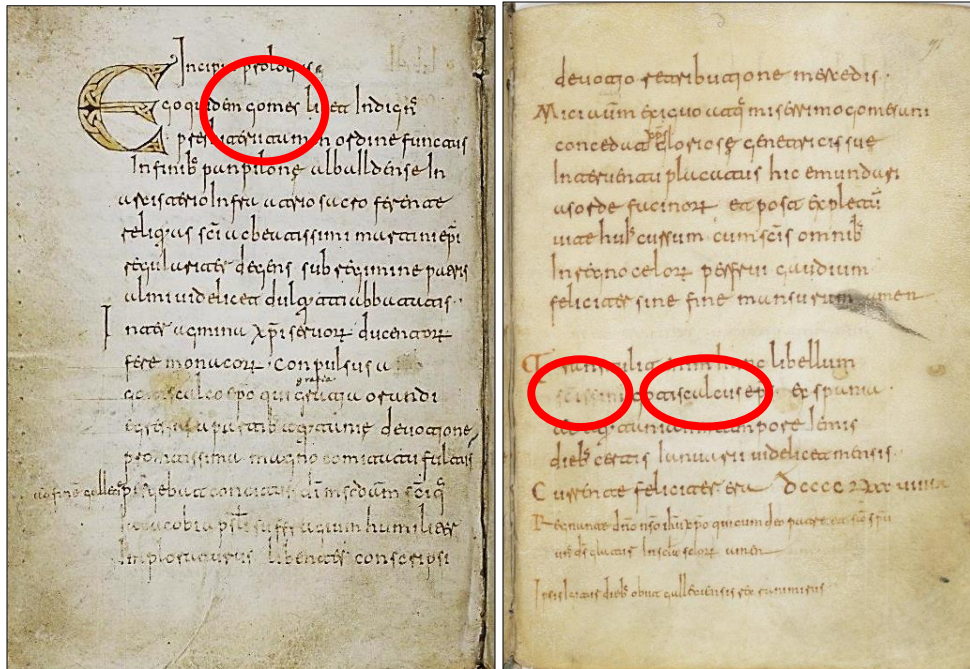 Incipit prologus
Ego quidem gomes licet Indignꝰ
presbiterii tamen In ordine functus
In finibꝰ panpilone albaldense In
arcisterio Infra atrio sacro ferente
reliquias sci ac beatissimi martini epi
regulariter degens sub regimine patris
almi uidelicet dulquitti abbatis
Inter agmina xpi seruorꝝ ducentorꝝ
fere monacorꝝ. Conpulsus a
gotiscalco epo qui gratia orandi
gratia
egressus a partibꝰ aquitanie deuotione
promtissima magno comitatu fultus
ad fine gallecie pergebat concitus di mscdam sciqꝫ
iacobi apsli suffragium humiliter
Imploraturus libenter conscripsi
deuotio retributione mercedis.
Mici autem exiguo atqꝫ miserrimo gomesani
concedat xps gloriose genetricis sue
Interuentu placatus hic emundari
a sorde facinorꝝ et post expletū
uite huiꝰ cursum cum scis omnibꝰ
In regno celorꝝ perfrui gaudium
feliciter sine fine mansurum amen
hunc libellum
scissimi gotiscalcus eps ex spania
ad aquitaniam tempore iemis
diebꝰ certis Ianuarii uidelicet mensis.
Currente feliciter era DCCCC
Regnante dno nso ihu xpo qui cum deo patre et sco spu
unꝰ ds gloriatur In scla sclorꝝ amen
Ipsis igitur diebꝰ obiit galleciensis rex ranimirus